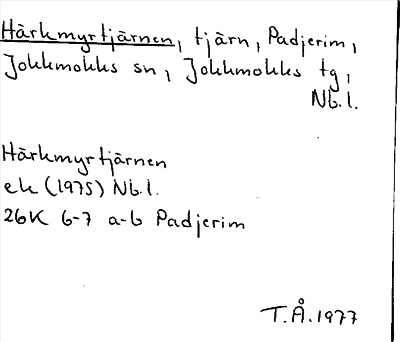 Härkmyrtjärnen, tjärn, Padjerim,
Jokkmokks sn, Jokkmokks tg,
Nb.l.
Härkmyrtjärnen
ek (1975) Nb.l.
26K 6-7 a-b Padjerim
T.Å.1977